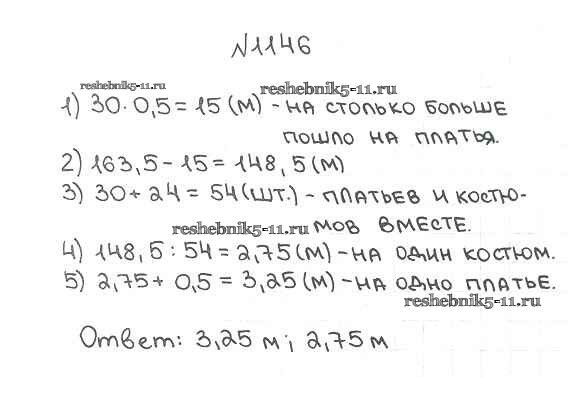 №1146
reshebnik5-11.ru
reshebnik5-11.ru
1) 30 · 0,5 = 15 (м) - на столько больше
пошло на платья.
2) 163,5 - 15 = 148,5 (м)
3) 30 + 24 = 54 (шт.) - платьев и костю-
reshebnik5-11.ru
мов вместе.
4) 148,5 : 54 = 2,75 (м) - на один костюм.
5) 2,75 + 0,5 = 3,25 (м) - на одно платье.
reshebnik5-11.ru
Ответ: 3,25 м; 2,75 м